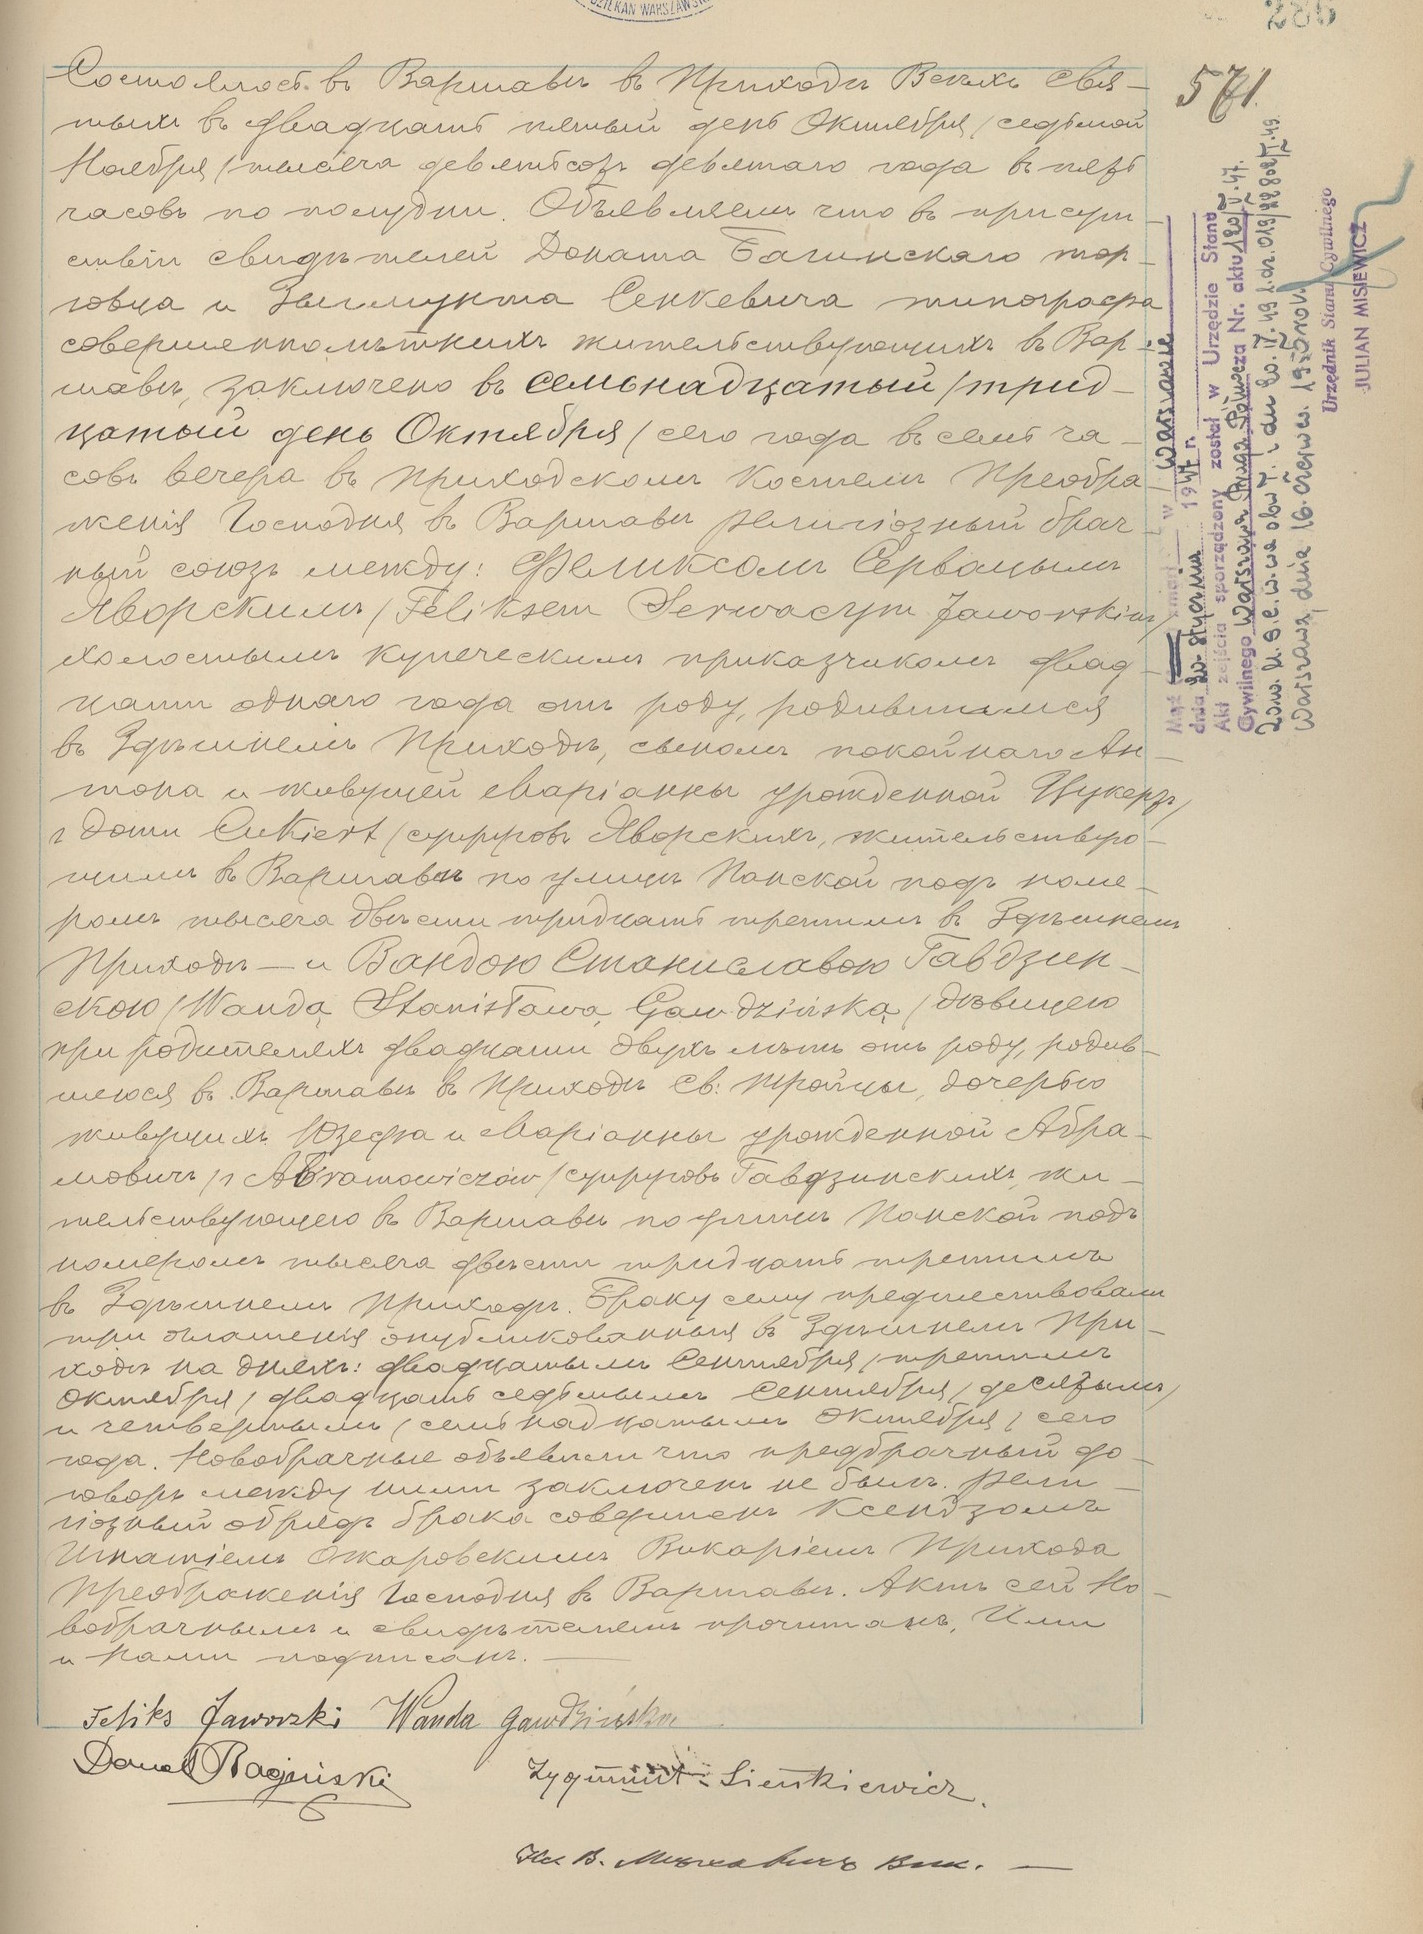 DZIEKAN WARSZAWSKI
286
571.
Состоялось въ Варшавѣ въ Приходѣ Всѣхъ Свя-
тыхъ въ двадцать пятый день Октября /седьмой
Ноября/ тысяча девятьсотъ девятаго года въ пять
часовъ по полудни. Объявляемъ что въ присут-
ствіи свидѣтелей Доната Багинскаго тор-
говца и Зыгмунта Сенкевича типографа
совершеннолѣтнихъ жительствующихъ въ Вар-
шавѣ, заключено въ семьнадцатый /трид-
цатый день Октября/ сего года въ семь ча-
совъ вечера въ Приходскомъ Костелѣ Преобра-
женія Господня въ Варшавѣ религіозный брач-
ный союзъ между: Феликсомъ Сервацымъ
Яворскимъ /Feliksem Serwacym Jaworskim/
холостымъ купеческимъ приказчикомъ двад-
цати одного года отъ роду, родившимся
въ Здѣшнемъ Приходѣ, сыномъ покойнаго Ан-
тона и живущей Маріанны урожденной Цукертъ/
z domu Cukiert /супруговъ Яворскихъ, жительствую-
щимъ въ Варшавѣ по улицѣ Панской подъ номе-
ромъ тысяча двѣсти тридцать третьимъ въ Здѣшнемъ
Приходѣ — и Вандою Станиславою Гавдзин-
скою /Wandą Stanisławą Gawdzińską/ дѣвицею
при родителяхъ двадцати двухъ лѣтъ отъ роду, родив-
шеюся въ Варшавѣ въ Приходѣ Св: Тройцы, дочерью
живущихъ Юзефа и Маріанны урожденной Абра-
мовичъ /z Abramowiczów/ супруговъ Гавдзинскихъ, жи-
тельствующею въ Варшавѣ по улицѣ Панской подъ
номеромъ тысяча двѣсти тридцать третьимъ
въ Здѣшнемъ Приходѣ. Браку сему предшествовали
три оглашенія опубликованныя въ Здѣшнемъ При-
ходѣ на дняхъ: двадцатымъ Сентября /третьимъ
Октября/ двадцать седьмымъ Сентября /десятымъ/
и четвертымъ /семьнадцатымъ Октября/ сего
года. Новобрачные объявили что предбрачный до-
говоръ между ними заключенъ не былъ. Рели-
гіозный обрядъ брака совершенъ Ксендзомъ
Игнатіемъ Ожаровскимъ Викаріемъ Прихода
Преображенія Господня въ Варшавѣ. Актъ сей Но-
вобрачнымъ и свидѣтелямъ прочитанъ, Ими
и Нами подписанъ. —
Feliks Jaworski Wanda Gawdzińska
Donat Bagiński
Zygmunt Sienkiewicz.
Кс. В. Вик. —
Mąż zmarł w Warszawie
dnia 20. stycznia 1947 r.
Akt zejścia sporządzony został w Urzędzie Stanu
Cywilnego Warszawa Praga Północ za Nr. aktu 120/V.47.
Warszawa, dnia 16. czerwca 1950 roku
Urzędnik Stanu Cywilnego
JULIAN MISIEWICZ